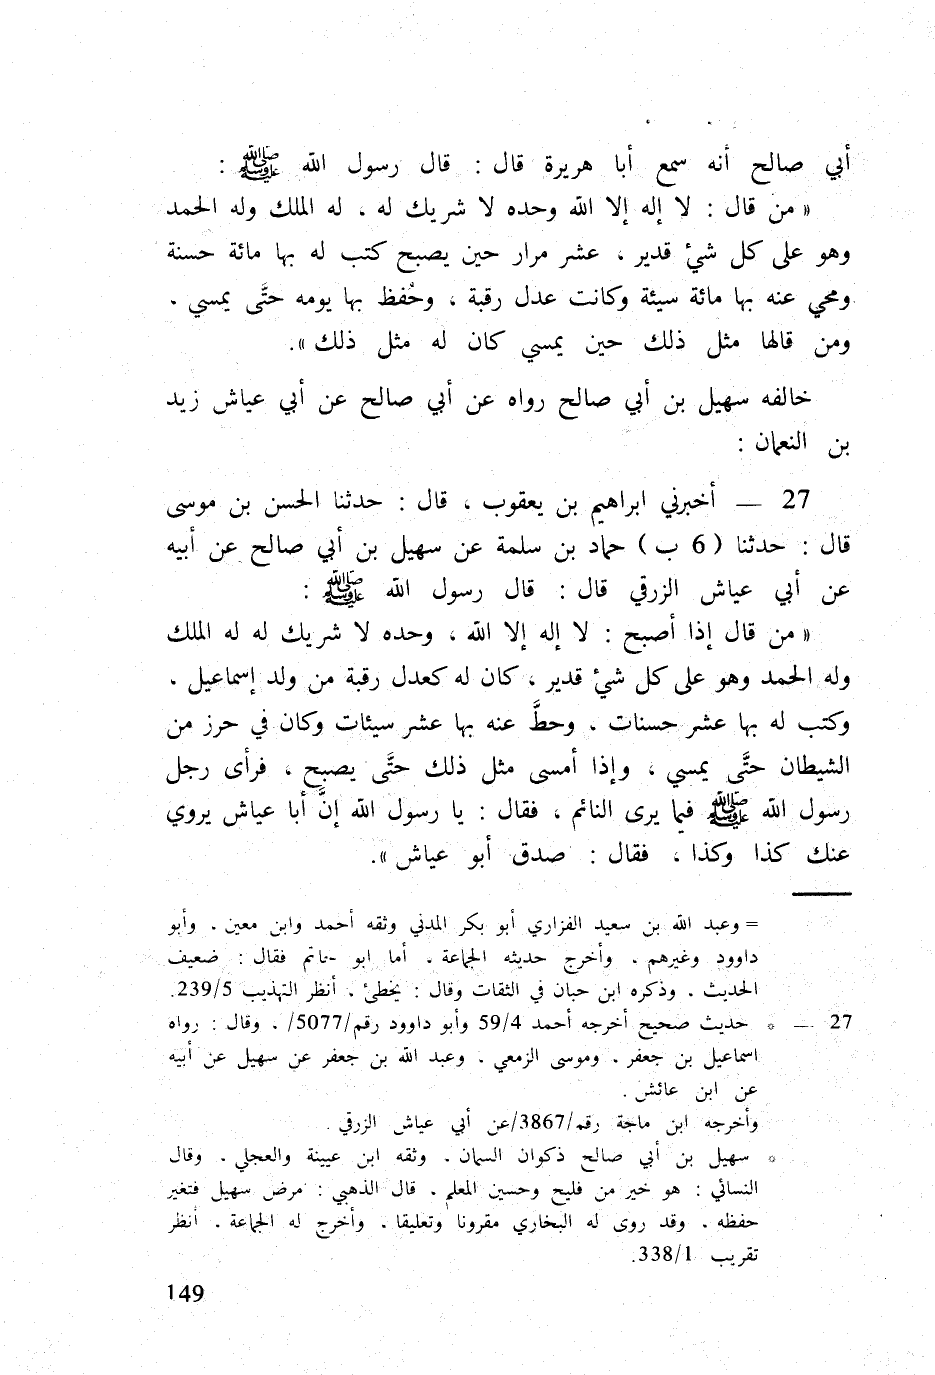 أبي صالح أنه سمع أبا هريرة قال : قال رسول الله ﷺ :
« من قال : لا إله إلا الله وحده لا شريك له ، له الملك وله الحمد
وهو على كل شيْ قدير ، عشر مرار حين يصبح كتب له بها مائة حسنة
ومحي عنه بها مائة سيئة وكانت عدل رقبة ، وحُفظ بها يومه حتَّى يمسي .
ومن قالها مثل ذلك حين يمسي كان له مثل ذلك ».
خالفه سهيل بن أبي صالح رواه عن أبي صالح عن أبي عياش زيد
بن النعمان :
27 — أخبرني ابراهيم بن يعقوب ، قال : حدثنا الحسن بن موسى
قال : حدثنا ( 6 ب ) حماد بن سلمة عن سهيل بن أبي صالح عن أبيه
عن أبي عياش الزرقي قال : قال رسول الله ﷺ :
« من قال إذا أصبح : لا إله إلا الله ، وحده لا شريك له له الملك
وله الحمد وهو على كل شيْ قدير ، كان له كعدل رقبة من ولد إسماعيل .
وكتب له بها عشر حسنات . وحطَّ عنه بها عشر سيئات وكان في حرز من
الشيطان حتَّى يمسي ، وإذا أمسى مثل ذلك حتَّى يصبح ، فرأى رجل
رسول الله ﷺ فيما يرى النائم ، فقال : يا رسول الله إنَّ أبا عياش يروي
عنك كذا وكذا ، فقال : صدق أبو عياش ».
= وعبد الله بن سعيد الفزاري أبو بكر المدني وثقه أحمد وابن معين . وأبو
داوود وغيرهم . وأخرج حديثه الجماعة . أما ابو حاتم فقال : ضعيف
الحديث . وذكره ابن حبان في الثقات وقال : يخطئ . أنظر التهذيب 239/5.
27 — * حديث صحيح أخرجه أحمد 59/4 وأبو داوود رقم/5077/ . وقال : رواه
اسماعيل بن جعفر . وموسى الزمعي . وعبد الله بن جعفر عن سهيل عن أبيه
عن ابن عائش .
وأخرجه ابن ماجة رقم/3867/عن أبي عياش الزرقي .
* سهيل بن أبي صالح ذكوان السمان . وثقه ابن عيينة والعجلي . وقال
النسائي : هو خير من فليح وحسين المعلم . قال الذهبي : مرض سهيل فتغير
حفظه . وقد روى له البخاري مقرونا وتعليقا . وأخرج له الجماعة . أنظر
تقريب 338/1.
149